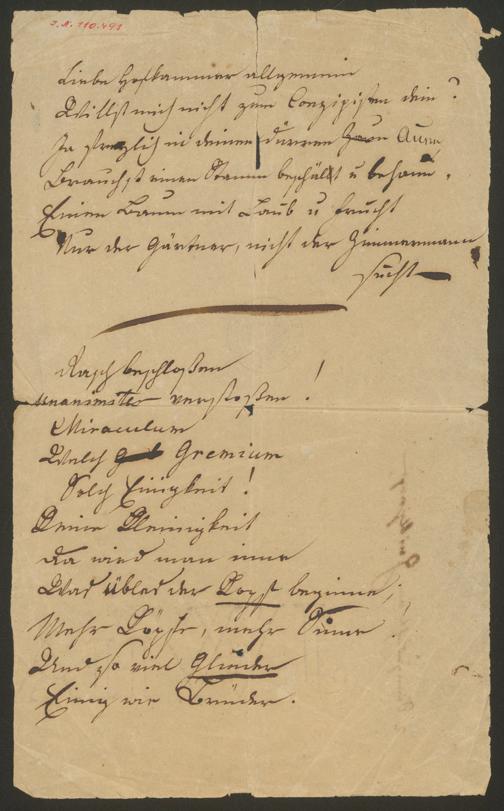 J.N. 110.491
Liebe Hofkammer allgemein
Willst mich nicht zum Conzipisten dein?
Ja freylich in deinen dürren Auen
Brauchst einen Stamm beschällt u behaun,
Einen Baum mit Laub u Frucht
Nur der Gärtner, nicht der Zimmermann
sucht
Rasch beschloßen
unanimiter verstoßen!
Miraculum
Welch Gremium
Solch Einigkeit!
Deine Kleinigkeit
Da wird man inne
Was übles der Kopf beginne;
Mehr Köpfe, mehr Sinne
Und so viel Glieder
Einig wie Brüder.